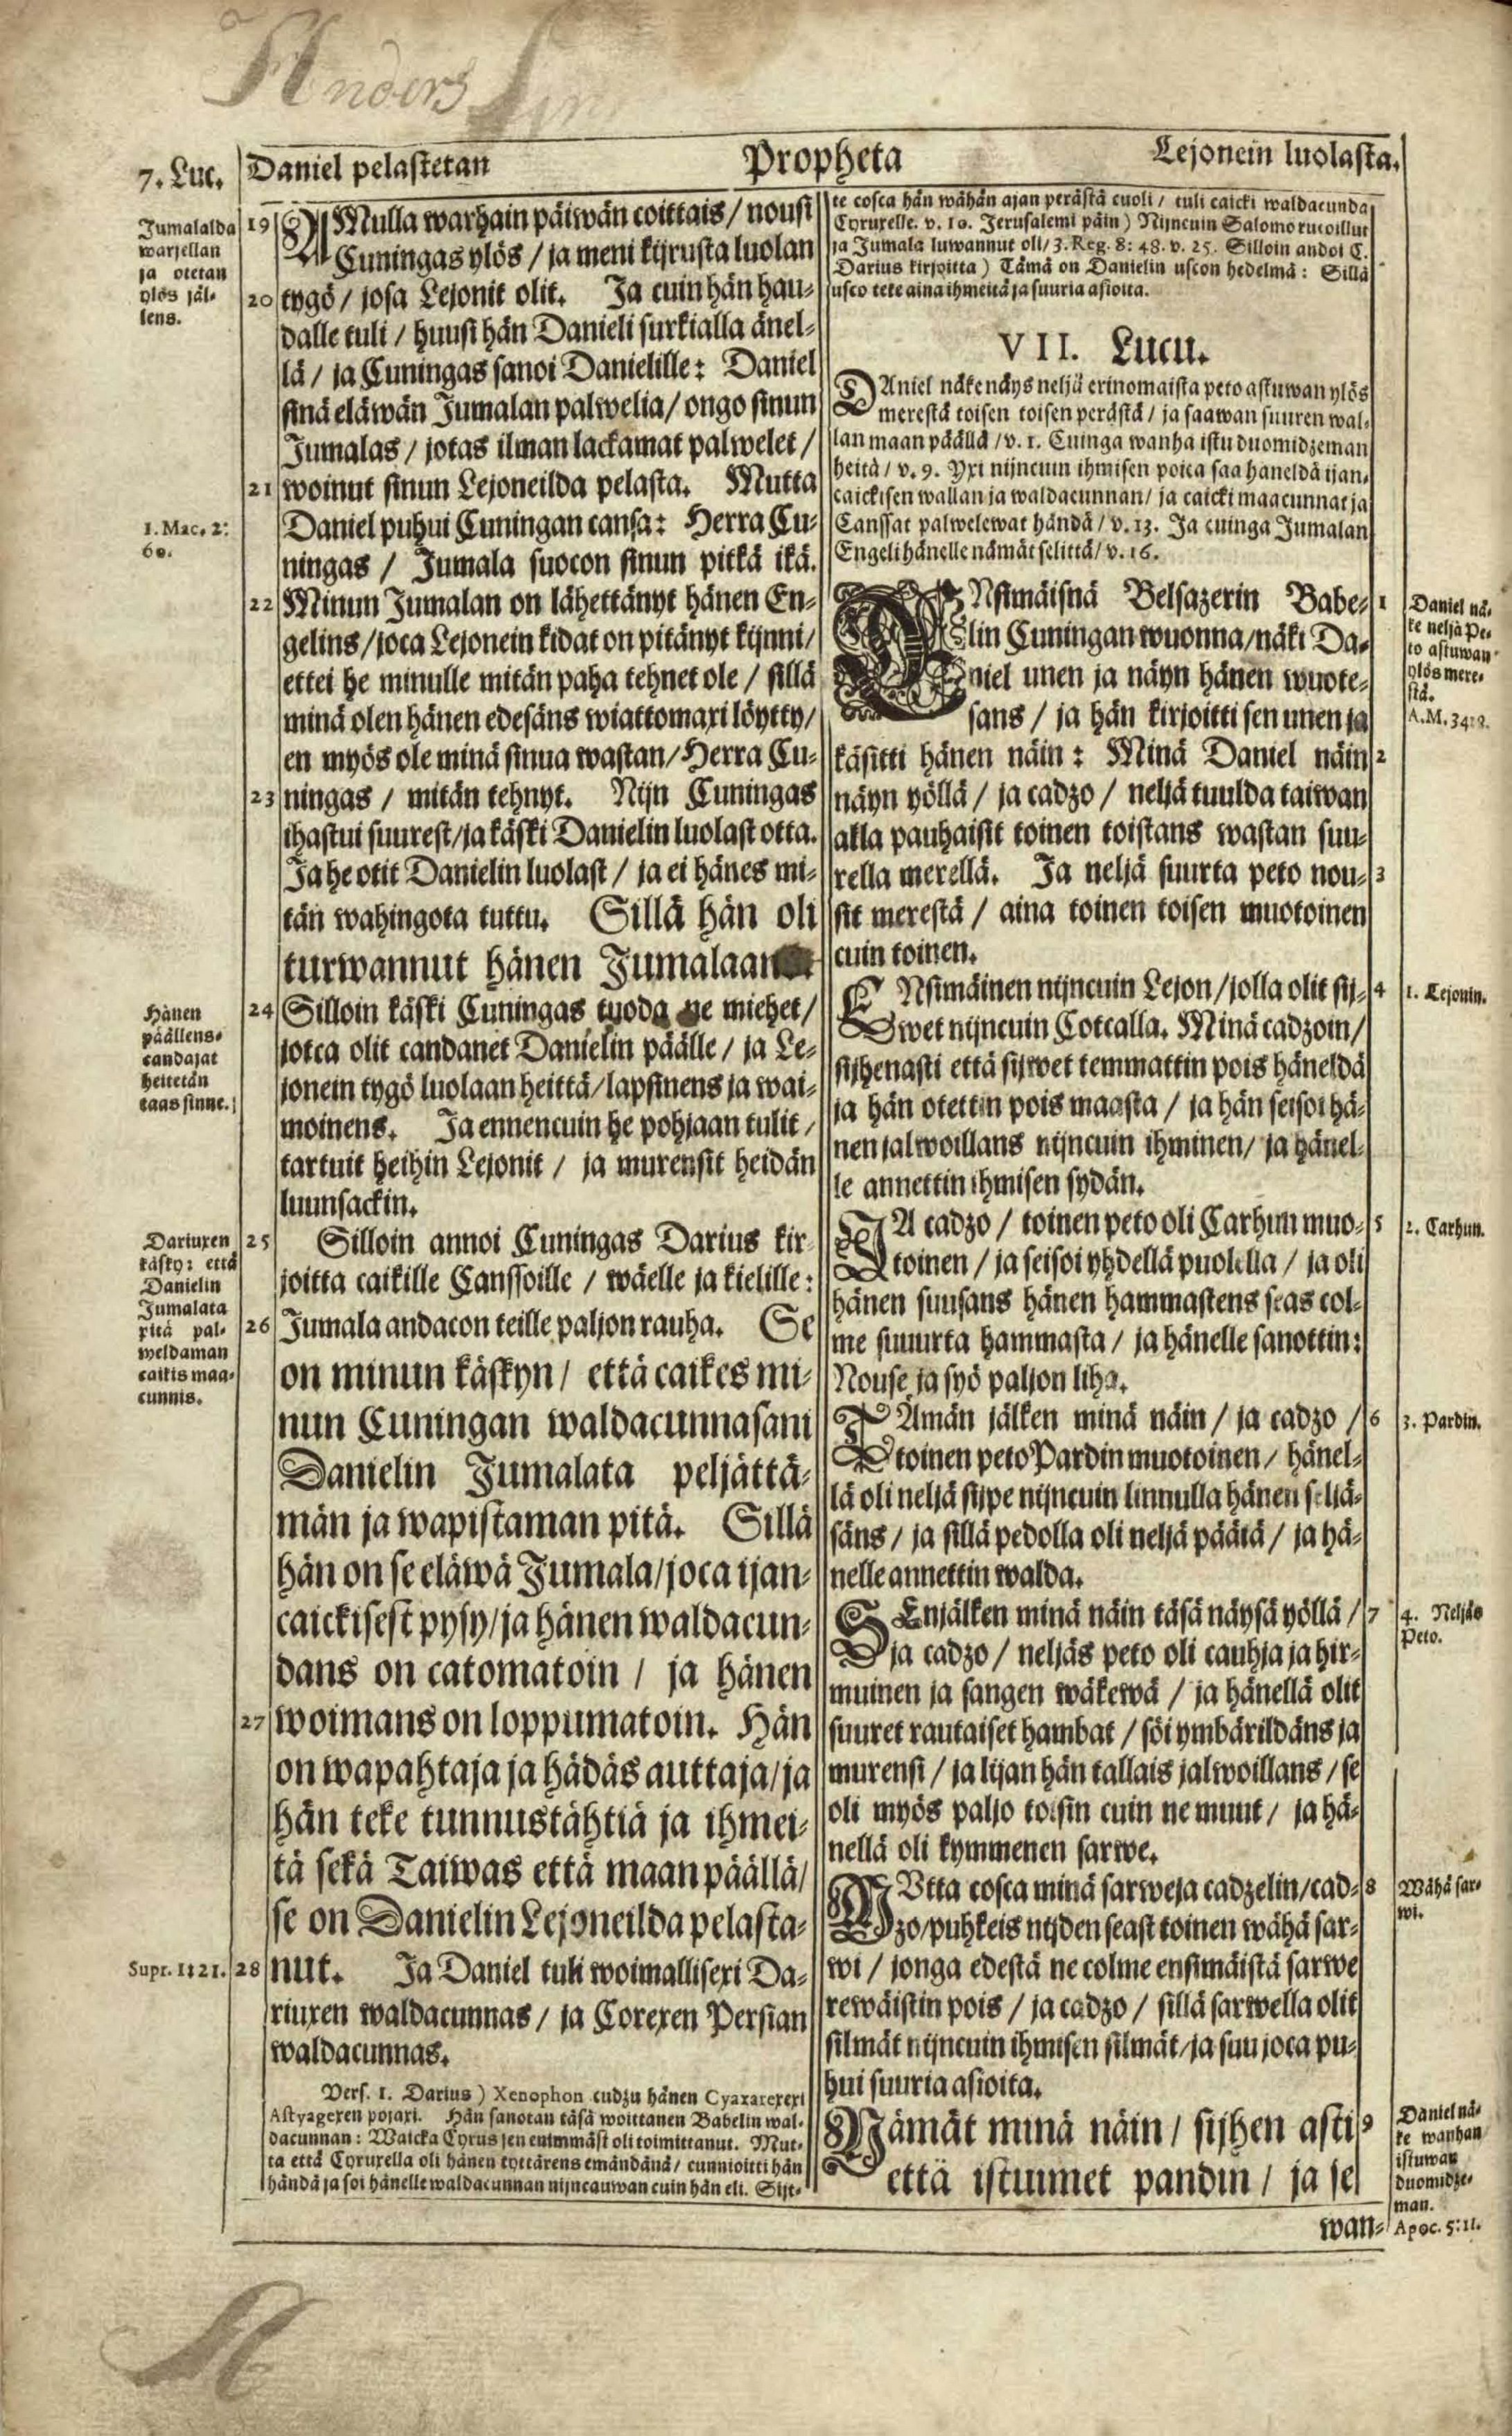 Anders
7. Luc.
Daniel pelastetan
Propheta
Lejonein luolasta.
Jumalalda
warjellan
ja otetan
ylös jäl-
lens.
19 AMulla warhain päiwän coittais / nousi
Cuningas ylös / ja meni kijrusta luolan
20 tygö / josa Lejonit olit. Ja cuin hän hau-
dalle tuli / huusi hän Danieli surkialla änel-
lä / ja Cuningas sanoi Danielille: Daniel
sinä eläwän Jumalan palwelia / ongo sinun
Jumalas / jotas ilman lackamat palwelet /
21 woinut sinun Lejoneilda pelasta. Mutta
1. Mac. 2:
60.
Daniel puhui Cuningan cansa: Herra Cu-
ningas / Jumala suocon sinun pitkä ikä.
22 Minun Jumalan on lähettänyt hänen En-
gelins / joca Lejonein kidat on pitänyt kijnni /
ettei he minulle mitän paha tehnet ole / sillä
minä olen hänen edesäns wiattomaxi löytty /
en myös ole minä sinua wastan / Herra Cu-
23 ningas / mitän tehnyt. Nijn Cuningas
ihastui suurest / ja käski Danielin luolast otta.
Ja he otit Danielin luolast / ja ei hänes mi-
tän wahingota tuttu. Sillä hän oli
turwannut hänen Jumalaans
Hänen
päällens-
candajat
heitetän
taas sinne.
24 Silloin käski Cuningas tuoda ne miehet /
jotca olit candanet Danielin päälle / ja Le-
jonein tygö luolaan heittä / lapsinens ja wai-
moinens. Ja ennencuin he pohjaan tulit /
tartuit heihin Lejonit / ja murensit heidän
luunsackin.
Dariuxen
käsky: että
Danielin
Jumalata
pitä pal-
weldaman
caikis maa-
cunnis.
25 Silloin annoi Cuningas Darius kir-
joitta caikille Canssoille / wäelle ja kielille:
26 Jumala andacon teille paljon rauha. Se
on minun käskyn / että caikes mi-
nun Cuningan waldacunnasani
Danielin Jumalata peljättä-
män ja wapistaman pitä. Sillä
hän on se eläwä Jumala / joca ijan-
caickisest pysy / ja hänen waldacun-
dans on catomatoin / ja hänen
27 woimans on loppumatoin. Hän
on wapahtaja ja hädäs auttaja / ja
hän teke tunnustähtiä ja ihmei-
tä sekä Taiwas että maan päällä /
se on Danielin Lejoneilda pelasta-
Supr. 1:21.
28 nut. Ja Daniel tuli woimallisexi Da-
riuxen waldacunnas / ja Corexen Persian
waldacunnas.
Vers. 1. Darius) Xenophon cudzu hänen Cyaxarexexi
Astyagexen pojaxi. Hän sanotan täsä woittanen Babelin wal-
dacunnan: Waicka Cyrus sen enimmäst oli toimittanut. Mut-
ta että Cyruxella oli hänen tyttärens emändänä / cunnioitti hän
händä ja soi hänelle waldacunnan nijncauwan cuin hän eli. Sijt-
te cosca hän wähän ajan perästä cuoli / tuli caicki waldacunda
Cyruxelle. v. 10. Jerusalemi päin) Nijncuin Salomo rucoillut
ja Jumala luwannut oli / 3. Reg. 8: 48. v. 25. Silloin andoi C.
Darius kirjoitta) Tämä on Danielin uscon hedelmä: Sillä
usco teke aina ihmeitä ja suuria asioita.
VII. Lucu.
DAniel näke näys neljä erinomaista peto astuwan ylös
merestä toisen toisen perästä / ja saawan suuren wal-
lan maan päällä / v. 1. Cuinga wanha istu duomidzeman
heitä / v. 9. Yxi nijncuin ihmisen poica saa häneldä ijan-
caickisen wallan ja waldacunnan / ja caicki maacunnat ja
Canssat palwelewat händä / v. 13. Ja cuinga Jumalan
Engeli hänelle nämät selittä / v. 16.
ENsimäisnä Belsazerin Babe- 1
lin Cuningan wuonna / näki Da-
niel unen ja näyn hänen wuote-
sans / ja hän kirjoitti sen unen ja
käsitti hänen näin: Minä Daniel näin 2
näyn yöllä / ja cadzo / neljä tuulda taiwan
alla pauhaisit toinen toistans wastan suu-
rella merellä. Ja neljä suurta peto nou- 3
sit merestä / aina toinen toisen muotoinen
cuin toinen.
Daniel nä-
ke neljä Pe-
to astuwan
ylös mere-
stä.
A.M. 3418.
ENsimäinen nijncuin Lejon / jolla olit sij- 4
wet nijncuin Cotcalla. Minä cadzoin /
sijhenasti että sijwet temmattin pois häneldä
ja hän otettin pois maasta / ja hän seisoi hä-
nen jalwoillans nijncuin ihminen / ja hänel-
le annettin ihmisen sydän.
1. Lejonin.
JA cadzo / toinen peto oli Carhun muo- 5
toinen / ja seisoi yhdellä puolella / ja oli
hänen suusans hänen hammastens seas col-
me suuurta hammasta / ja hänelle sanottin:
Nouse ja syö paljon liha.
2. Carhun.
TAmän jälken minä näin / ja cadzo / 6
toinen peto Pardin muotoinen / hänel-
lä oli neljä sijpe nijncuin linnulla hänen seljä-
säns / ja sillä pedolla oli neljä päätä / ja hä-
nelle annettin walda.
3. Pardin.
SEnjälken minä näin täsä näysä yöllä / 7
ja cadzo / neljäs peto oli cauhia ja hir-
muinen ja sangen wäkewä / ja hänellä olit
suuret rautaiset hambat / söi ymbärildäns ja
murensi / ja lijan hän tallais jalwoillans / se
oli myös paljo toisin cuin ne muut / ja hä-
nellä oli kymmenen sarwe.
4. Neljäs
Peto.
MUtta cosca minä sarweja cadzelin / cad- 8
zo / puhkeis nijden seast toinen wähä sar-
wi / jonga edestä ne colme ensimäistä sarwe
rewäistin pois / ja cadzo / sillä sarwella olit
silmät nijncuin ihmisen silmät / ja suu joca pu-
hui suuria asioita.
Wähä sar-
wi.
NÄmät minä näin / sijhen asti 9
että istuimet pandin / ja se
wan-
Daniel nä-
ke wanhan
istuwan
duomidze-
man.
Apoc. 5:11.